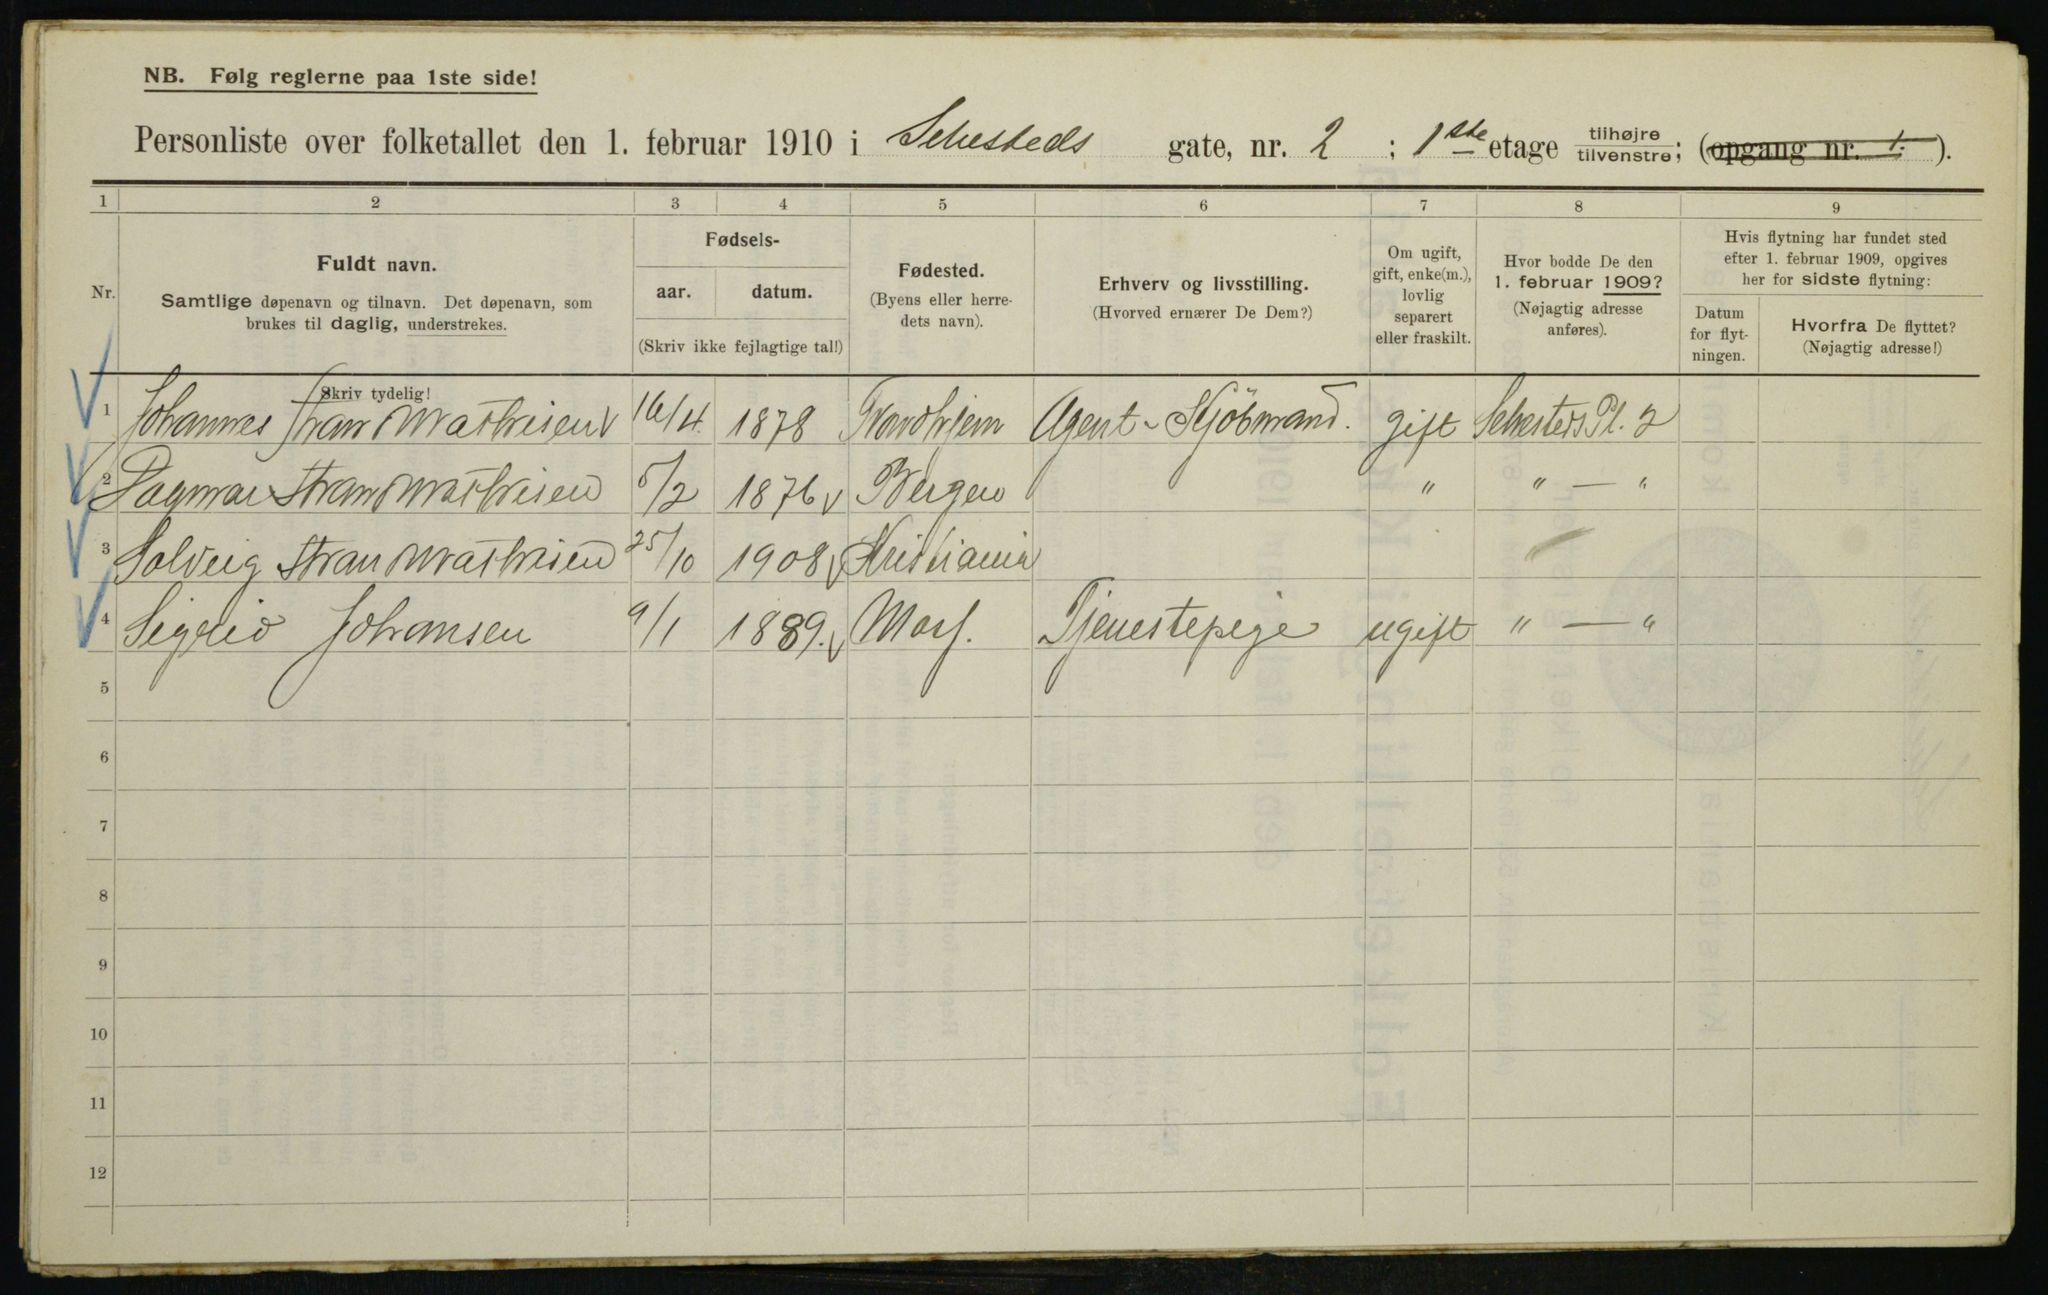 NB. Følg reglerne paa 1ste side!
Personliste over folketallet den 1. februar 1910 i Sehesteds gate, nr. 2 ; 1ste etage tilhøjre tilvenstre; (opgang nr. 1. ).
1 2 3 4 5 6 7 8 9
Nr.
Fuldt navn.
Samtlige døpenavn og tilnavn. Det døpenavn, som
brukes til daglig, understrekes.
Fødsels-
aar. datum.
(Skriv ikke fejlagtige tal!)
Fødested.
(Byens eller herre-
dets navn).
Erhverv og livsstilling.
(Hvorved ernærer De Dem?)
Om ugift,
gift, enke(m.),
lovlig
separert
eller fraskilt.
Hvor bodde De den
1. februar 1909?
(Nøjagtig adresse
anføres).
Hvis flytning har fundet sted
efter 1. februar 1909, opgives
her for sidste flytning:
Datum
for flyt-
ningen.
Hvorfra De flyttet?
(Nøjagtig adresse!)
Skriv tydelig!
1 Johannes Mathisen 16/4 1878 Trondhjem Agent - Kjöbmand. gift Sehesteds Pl. 2
2 Dagmar Mathisen 5/2 1876 Bergen " " — "
3 Solveig Mathisen 25/10 1908 Kristiania "
4 Sigrid Johansen 9/1 1889. Moss. Tjenestepige ugift " — "
5
6
7
8
9
10
11
12